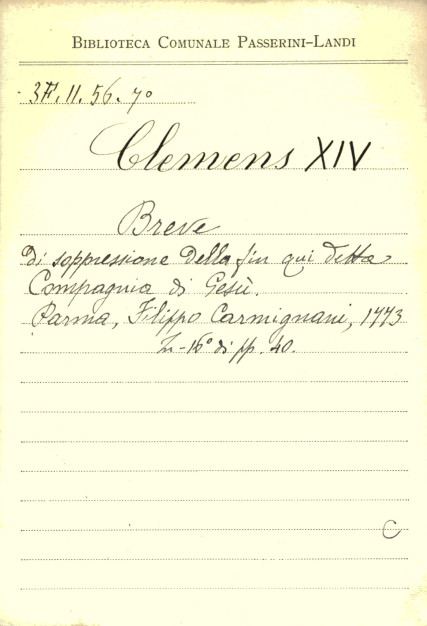 BIBLIOTECA COMUNALE PASSERINI-LANDI
3F. II. 56. 7º
Clemens XIV
Breve
di soppressione della fin qui detta
Compagnia di Gesù.
Parma, Filippo Carmignani, 1773
In-16º di pp. 40.
C